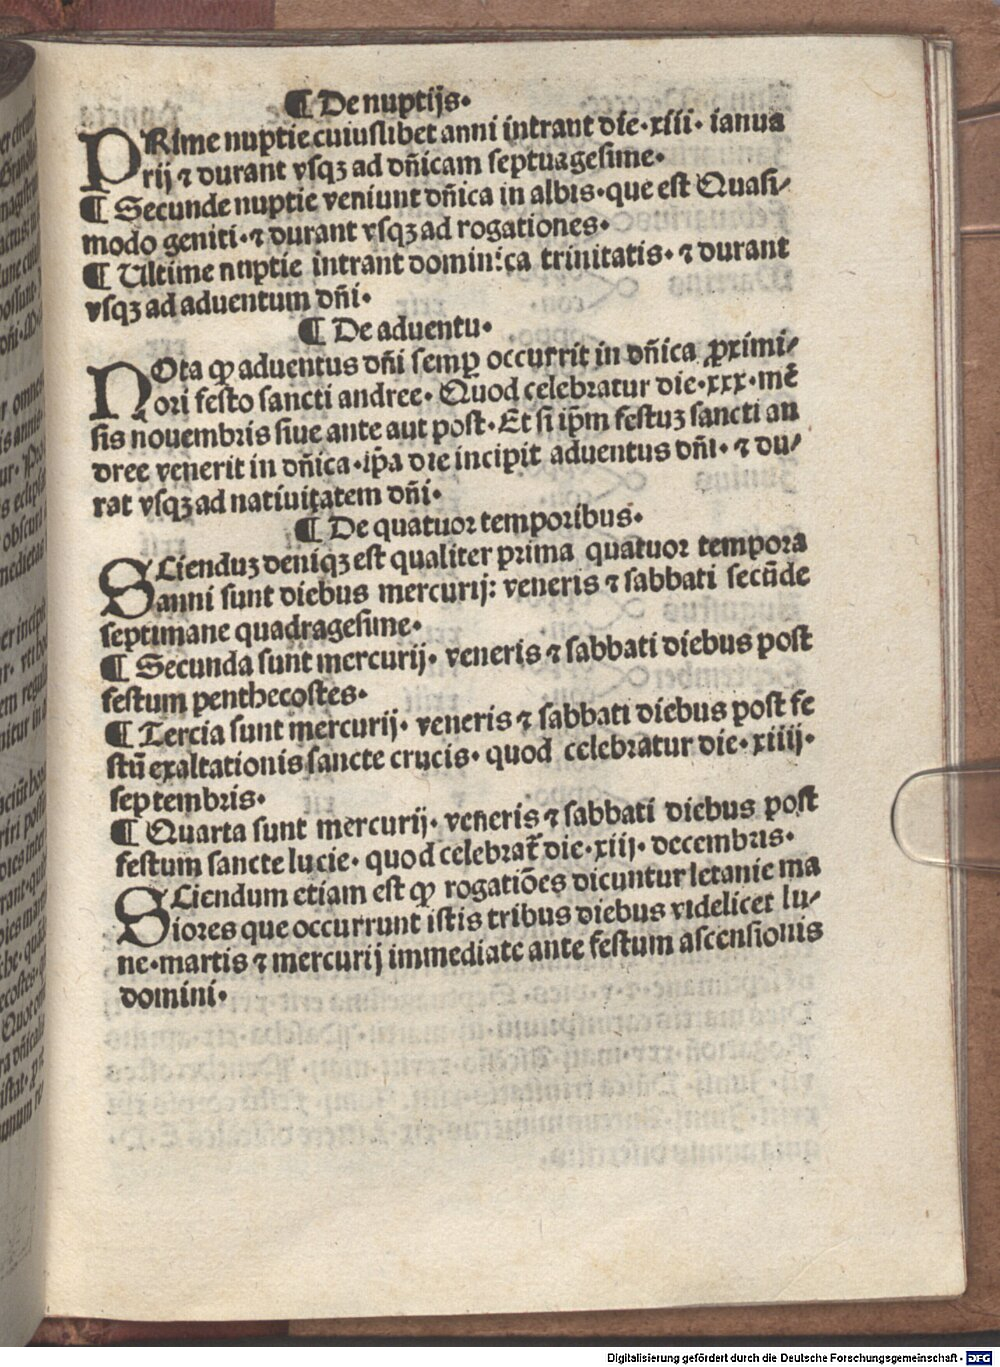 ¶ De nuptijs.
PRime nuptie cuiuslibet anni intrant die. xiii. ianua
rij ⁊ durant vsqꝫ ad dn̄icam septuagesime.
¶ Secunde nuptie veniunt dn̄ica in albis. que est Quasi/
modo geniti. ⁊ durant vsqꝫ ad rogationes.
¶ Ultime nuptie intrant dominica trinitatis. ⁊ durant
vsqꝫ ad aduentum dn̄i.
¶ De aduentu.
NOta ꝙ aduentus dn̄i semꝑ occurrit in dn̄ica ꝓximi/
ori festo sancti andree. Quod celebratur die. xxx. mē
sis nouembris siue ante aut post. Et si ip̄m festuꝫ sancti an
dree venerit in dn̄ica. ip̄a die incipit aduentus dn̄i. ⁊ du/
rat vsqꝫ ad natiuitatem dn̄i.
¶ De quatuor temporibus.
SCienduꝫ deniqꝫ est qualiter prima quatuor tempora
anni sunt diebus mercurij: veneris ⁊ sabbati secūde
septimane quadragesime.
¶ Secunda sunt mercurij. veneris ⁊ sabbati diebus post
festum penthecostes.
¶ Tercia sunt mercurij. veneris ⁊ sabbati diebus post fe
stū exaltationis sancte crucis. quod celebratur die. xiiij.
septembris.
¶ Quarta sunt mercurij. veneris ⁊ sabbati diebus post
festum sancte lucie. quod celebrat̄ die. xiij. decembris.
SCiendum etiam est ꝙ rogatiōes dicuntur letanie ma
iores que occurrunt istis tribus diebus videlicet lu/
ne. martis ⁊ mercurij immediate ante festum ascensionis
domini.
Digitalisierung gefördert durch die Deutsche Forschungsgemeinschaft - DFG